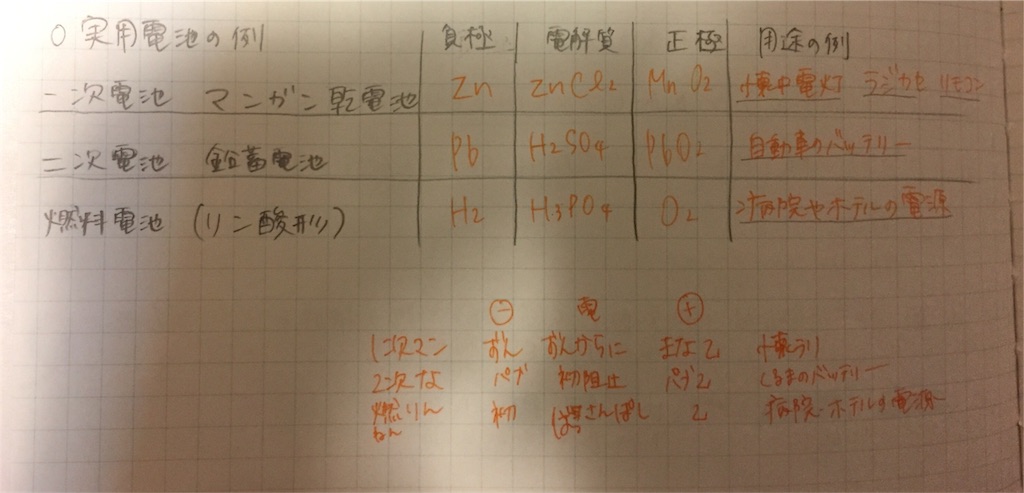 ○ 実用電池の例 負極 電解質 正極 用途の例
一次電池 マンガン乾電池 Zn ZnCl₂ MnO₂ 懐中電灯 ラジカセ リモコン
二次電池 鉛蓄電池 Pb H₂SO₄ PbO₂ 自動車のバッテリー
燃料電池 (リン酸形) H₂ H₃PO₄ O₂ 病院やホテルの電源
⊖ 電 ⊕
1次マン おんからに まな2
2次な パブ 初阻止 パブ2 くるまのバッテリー
燃りん 初 さんぽし 2 病院・ホテルの電源
ねん